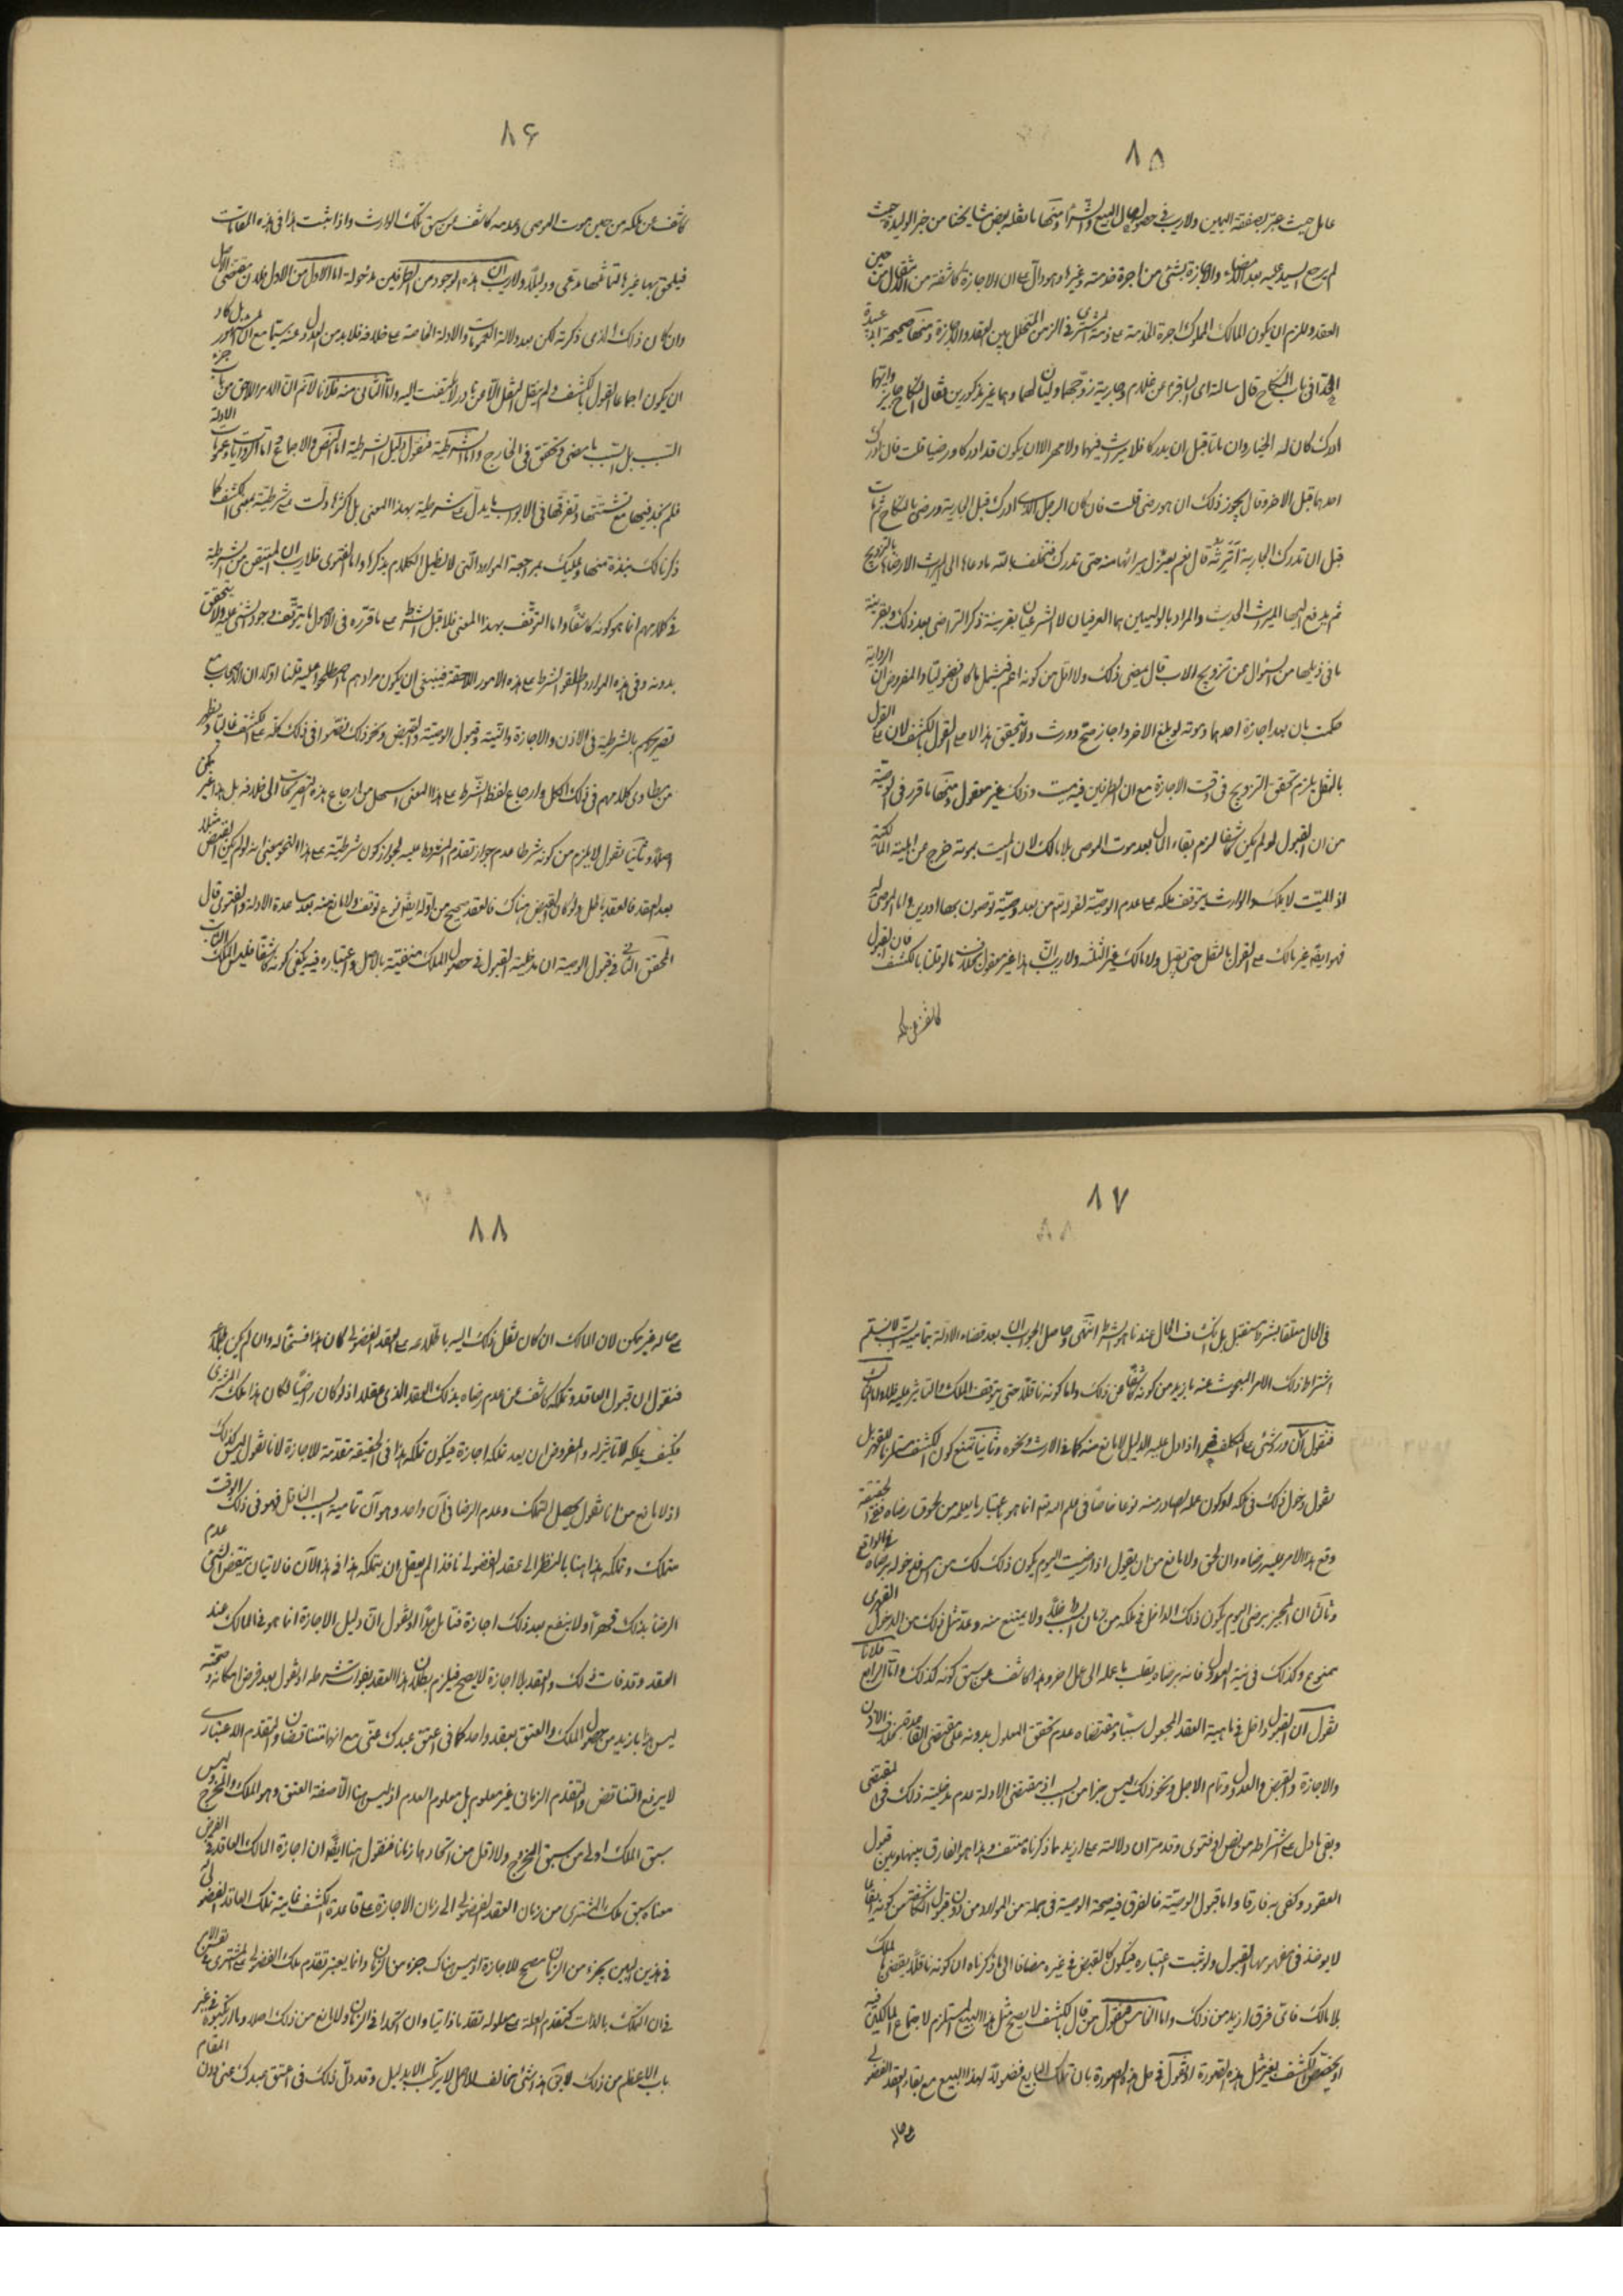 ٨٥
عامل حيث خير بصفقة اليمين ولا ريب في حصول مال البيع والشراء ومنها ما نقله بعض مشايخنا من خبر الوليدة حيث
لم يرجع السيد عليه بعد الامضاء والاجازة بشئ من اجرة خدمته وغيرها وهو دال على ان الاجازة كاشفة من حين
العقد وللزم ان يكون للمالك المملوك اجرة الخدمة على ذمة المشتري في الزمن المتخلل بين العقد والاجازة ومنها صحيحة ابي عبيدة
الحذاء في باب النكاح قال سالت ابي الباقر عن غلام وجارية زوجهما وليان لهما وهما غير مدركين فقال النكاح جايز وايهما
ادرك كان له الخيار وان ماتا قبل ان يدركا فلا ميراث بينهما ولا مهر الا ان يكون قد ادركا ورضيا قلت فان ادرك
احدهما قبل الاخر وقال يجوز ذلك ان هو رضي قلت فان كان الرجل الذي ادرك قبل الجارية ورضي بالنكاح ثم مات
قبل ان تدرك الجارية اترثه قال نعم يعزل ميراثها منه حتى تدرك فتحلف بالله ما دعاها الى الميراث الا رضاها بالتزويج
ثم يدفع اليها الميراث الحديث والمراد بالوليين هما العرفيان لا الشرعيان بقرينة ذكر التراضي بعد ذلك وبقرينة
ما في ذيلها من السؤال عن تزويج الاب قال يمضي ذلك ولا اقل من كونه اعم فيشمل ما كان فضوليا والمفروض ان الرواية
حكمت بان بعد اجازة احدهما وموته لو بلغ الاخر واجاز صح وورث ولا يتحقق هذا الا على القول بالكشف لان على القول
بالنقل يلزم تحقق التزويج في وقت الاجازة مع ان الطرفين فيه ميت وذلك غير معقول ومنها ما قرر في الوصية
من ان القبول لو لم يكن كاشفا لزم بقاء المال بعد موت الموصي بلا مالك لان الميت بموته خرج عن اهلية المالكية
اذ الميت لا يملك والوارث يتوقف ملكه على عدم الوصية لقوله تعالى من بعد وصية توصون بها او دين واما الموصى له
فهو ايضا غير مالك على القول بالنقل حتى يقبل ولا مالك غير الثلثة ولا ريب ان هذا غير معقول بخلاف ما لو قلنا بالكشف فان القبول
كاشف عن ملكه
٨۶
كاشف عن ملكه من حين موت الموصي وعدمه كاشف عن سبق تملك الوارث واذا ثبت هذا في هذه المقامات
فيلحق بها غيرها لتماثلها مدعى ودليلا ولا ريب ان هذه الوجوه من الطرفين مدخولة اما الاول من الاول فلان مقتضى الاصل
وان كان ذلك الذي ذكرته لكن بعد دلالة العمومات والادلة الخاصة على خلافه فلا بد من العدول عنه سيما مع ان المشهور بل كاد
ان يكون اجماعا القول بالكشف ولم ينقل النقل الا من نادر لا يلتفت اليه واما الثاني منه فلانا لا نم ان الامر اللاحق جزء من
السبب بل السبب ما مضى وتحقق في الخارج واما الشرطية فنقول دليل الشرطية اما النص والاجماع اما الروايات وعمومات الادلة
فلم نجد فيها مع تشتتها وتفرقها في الابواب ما يدل على شرطية بهذا المعنى بل اكثرها دلت على شرطيته بمعنى الكشف كما
ذكرنا لك نبذة منها وعليك بمراجعة الموارد التي لا نطيل الكلام بذكرها واما الفتوى فلا ريب ان المتيقن من الشرطية
في كلامهم انما هو كونه كاشفا واما التوقف بهذا المعنى فلا قبل الشرط على ما قرره في الاصول ما يتوقف وجود الشئ عليه ولا يتحقق
بدونه وفي هذه الموارد اطلقوا الشرط على هذه الامور اللاحقة فينبغي ان يكون مرادهم ما اصطلحوا عليه قلنا اولا ان الاصحاب مع
تصريحهم بالشرطية في الاذن والاجازة والنية وقبول الوصية والقبض ونحو ذلك نصوا في ذلك كله على الكشف غالبا ويظهر
من مطاوي كلامهم في ذلك الكل وارجاع لفظ الشرط على هذا المعنى اسهل من ارجاع هذه التصريحات الى خلافه بل هذا غير ممكن
اصلا وثانيا نقول لا يلزم من كونه شرطا عدم جواز تقدم المشروط عليه لجواز كون شرطيته على هذا النحو بمعنى انه لو لم يكن القبض مثلا
بعد العقد فالعقد باطل ولو كان القبض هناك فالعقد صحيح من اوله ايضا نوع توقف ولا مانع منه بعد مساعدة الادلة والفتوى قال
المحقق الثاني في قبول الوصية ان مدخلية القبول في حصول الملك منفية بالاصل واعتباره فيه يكفي كونه كاشفا فليس الملك الثابت
٨٧
في الحال معلقا بشرط مستقبل بل انكشاف الحال عندنا هو الشرط انتهى وحاصل الجواب ان بعد قضاء الادلة بتمامية السبب لا نسلم
اشتراط ذلك الامر المبحوث عنه بازيد من كونه كاشفا عن ذلك واما كونه ناقلا حتى يتوقف الملك والتاثير عليه فلا واما الثالث
فنقول ان دخول شئ على المكلف قهرا اذا دل عليه الدليل لا مانع منه كما في الارث ونحوه وثانيا نمنع كون الكشف مستلزما للقهر بل
نقول دخول ذلك في ملكه لو كون عمله الصادر منه نوعا خاصا في علم الله تعالى انما هو باعتبار ما يعلمه من لحوق رضاه ففي الحقيقة
وقع هذا الامر عليه رضاه وان لحق ولا مانع من ان يقول اذا رضيت اليوم يكون ذلك لك من امس فدخوله برضاه في الواقع
وثالثا ان المجيز برضى اليوم يكون ذلك الداخل في ملكه من زمان السبب ظاهرا ولا يمتنع منه وعد مثل ذلك من الدخول القهري
ممنوع وكذلك في نية العدول فانه برضاه يقلب ما عمله الى عمل اخر وهذا كاشف عن سبق كونه كذلك واما الرابع فلانا
نقول ان القبول داخل في ماهية العقد المجعول سببا ومقتضاه عدم تحقق المعلول بدونه على مقتضى القاعدة بخلاف الاذن
والاجازة والقبض والعدول وتمام الاجل ونحو ذلك ليس جزءا من السبب اذ مقتضى الادلة عدم مدخلية ذلك في المقتضي
وبقي ما دل على اشتراطه من نص او فتوى وقد مر ان دلالته على ازيد مما ذكرناه منتف وهذا هو الفارق بينها وبين قبول
العقود وكفى به فارقا واما قبول الوصية فالفرق فيه صحة الوصية في جملة من الموارد من دون قبول
لا يوخذ في مفهومها القبول ولو ثبت اعتباره فيكون كالقبض في غيره مضافا الى ما ذكرناه ان كونه ناقلا يقضي بالملك
بلا مالك فاي فرق ازيد من ذلك واما الخامس فنقول من قال بالكشف لا يصح مثل هذا البيع المستلزم لاجتماع المالكين فيه
او يختص الكشف بغير مثل هذه الصورة او نقول في حل هذه الصورة بان تملك البايع فضولا لهذا البيع مع بقاء العقد الفضولي
على حاله
٨٨
على حاله غير ممكن لان المالك ان كان نقل ذلك اليه باطلاعه على العقد الفضولي كان هذا فسخا له وان لم يكن مطلعا
فنقول ان قبول العاقد وتملكه كاشف عن عدم رضاه بذلك العقد الذي عقده اذ لو كان راضيا لكان هذا ملك المشتري
فكيف يملكه لا تاثير له والمفروض ان بعد تملكه اجازة فيكون تملكه هذا في الحقيقة مقدمة للاجازة لانا نقول ليس كذلك
اذ لا مانع من ان نقول يحصل التملك وعدم الرضا في آن واحد وهو آن تمامية السبب الناقل فهو في ذلك الوقت
متملك وتملكه هذا مناب بالنظر الى عقد الفضولي نافذ الم يعقل ان يتملكه هذا في هذا الآن فالاتيان ينقض عدم
الرضا بذلك قهرا ولا ينفع بعد ذلك اجازة فتامل جدا او نقول ان دليل الاجازة انما هو في المالك عند
العقد وقد فات ذلك والعقد بلا اجازة لا يصح فيلزم بطلان هذا العقد بفوات شرطه او نقول بعد فرض امكانه وصحته
ليس هذا بازيد من حصول الملك والعتق بعقد واحد كما في اعتق عبدك عني مع انهما متناقضان والتقدم الاعتباري
لا يرفع التناقض والتقدم الزماني غير معلوم بل معلوم العدم اذ ليس هنا الا صيغة العتق وهو المملك والمخرج وليس
سبق الملك اولى من سبق الخروج ولا اقل من اتحادهما زمانا فنقول هنا ايضا ان اجازة المالك العاقد في الفرض
معناه سبق ملك المشتري من زمان العقد الفضولي الى زمان الاجازة على قاعدة الكشف غايته تملك العاقد الفضولي
في هذين البين بجزء من الزمان مصحح للاجازة اوليس هناك جزء من الزمان وانما يعتبر تقدم ملك الفضولي على المشتري
فان التملك بالذات كتقدم العلة على معلوله تقدما ذاتيا وان اتحدا في الزمان ولا مانع من ذلك اصلا وما ارتكبوه في غير
باب الاعظم من ذلك لا يق هذا شئ مخالف للاصل لا يرتكب الا بدليل وقد دل ذلك في اعتق عبدك عني دون المقام